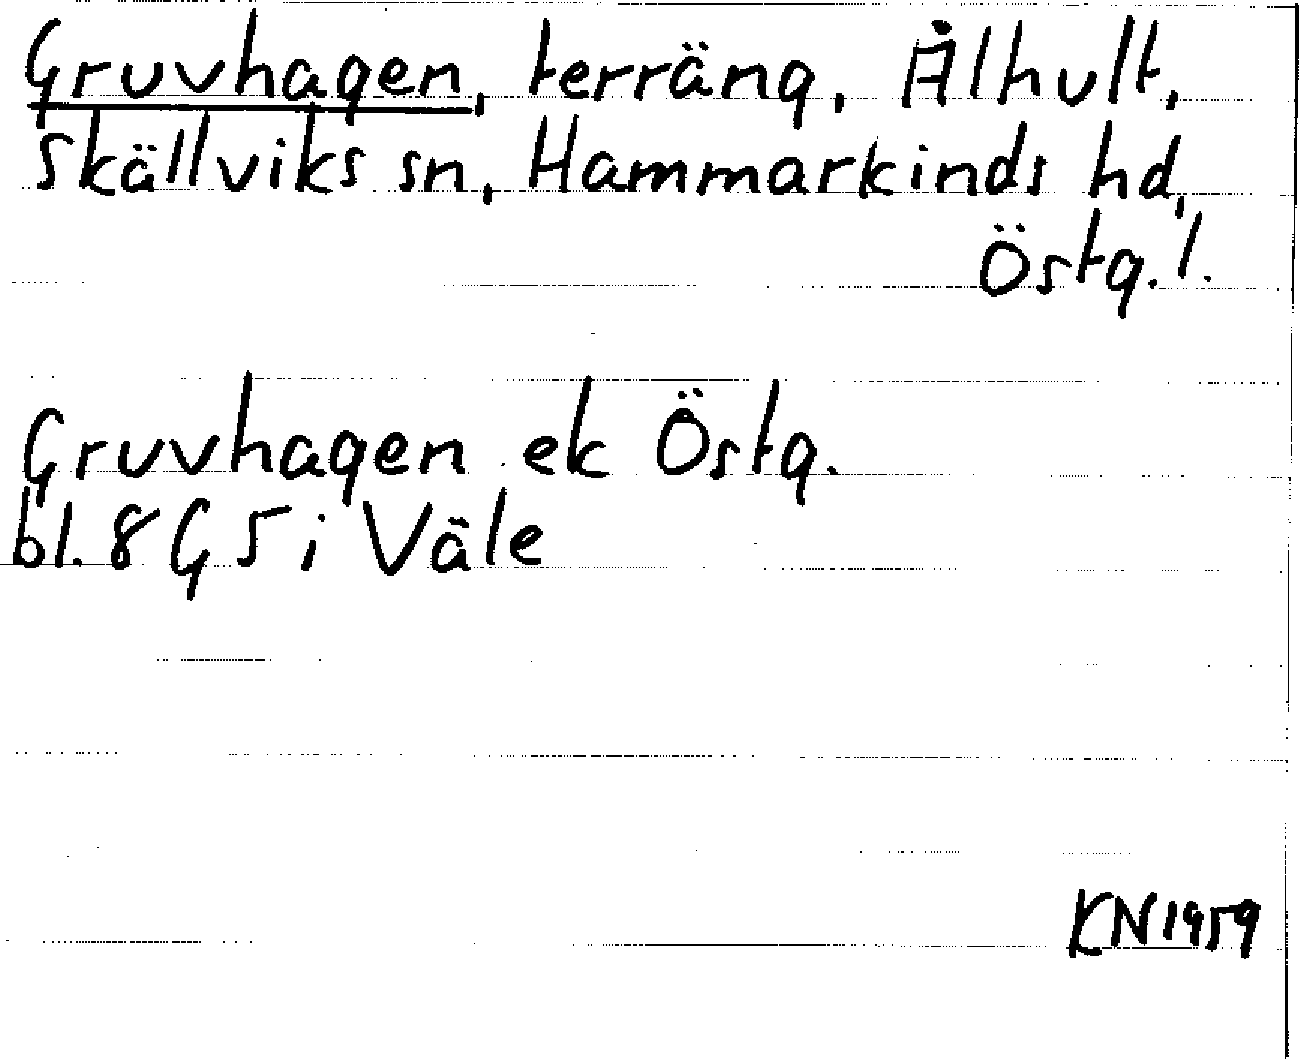 Gruvhagen, terräng, Ålhult,
Skällviks sn, Hammarkinds hd,
Östg. l.
Gruvhagen ek Östg.
bl. 8 G 5 i Väle
KN 1959